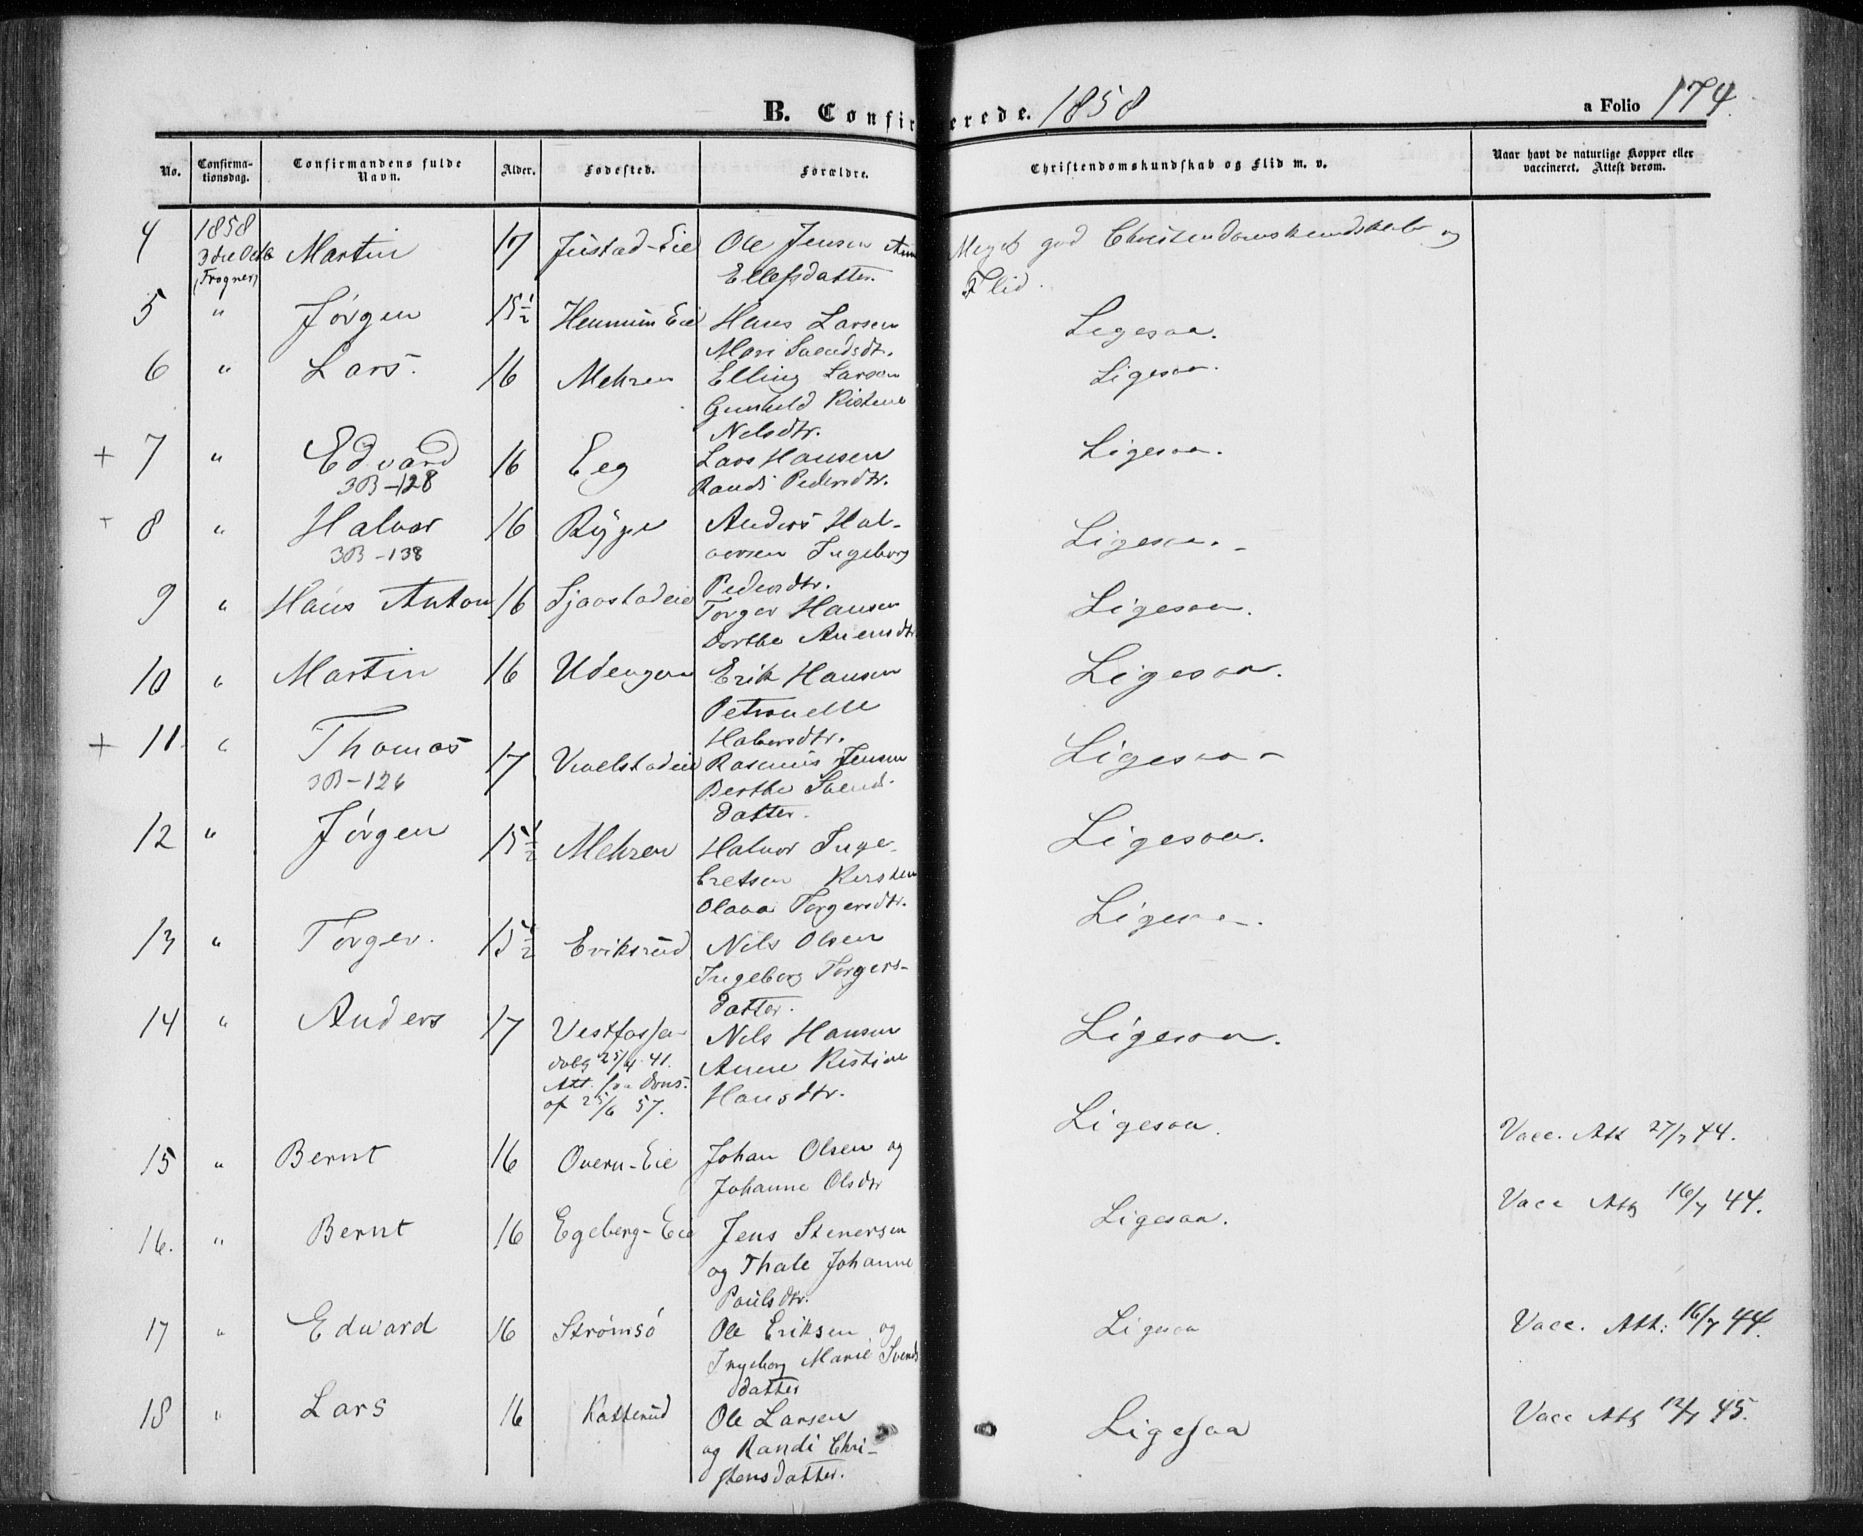 B. Confirmerede. 1858
a Folio 174.
No. Confirmationsdag. Confirmandens fulde Navn. Alder. Fødested. Forældre. Christendomskundskab og Flid m. v. Naar havt de naturlige Kopper eller vaccineret. Attest derom.
4 1858 3die Octb (Frogner) Martin 17 Justad-Eie Ole Jensen Anne Meget god Christendomskundskab og
Ellefsdatter. Flid.
5 " Jørgen 15½ Hennum Eie Hans Larsen Ligesaa.
Mari Svendsdtr.
6 " Lars. 16 Mehren Elling Larsen Ligesaa.
Gunhild Kistine
Nelsdtr.
+ 7 " Edvard 16 Eeg Lars Hansen Ligesaa.
3B-128 Randi Pedersdtr.
+ 8 " Halvor 16 Rype Anders Hal- Ligesaa.
3B-138 vorsen Ingeborg
Pedersdtr.
9 " Hans Anton 16 Sjaastadeie Torger Hansen Ligesaa.
Dorthe Anensdtr
10 " Martin 16 Udengen Erik Hansen Ligesaa.
Petronelle
Halvorsdtr.
+ 11 " Thomas 17 Vivelstadeie Rasmus Jensen Ligesaa
3B-126 Berthe Svends
datter.
12 " Jørgen 15½ Mehren Halvor Inge- Ligesaa.
bretsen Kersten
Olava Torgersdtr.
13 " Torger. 15½ Eriksrud Nils Olsen Ligesaa.
Ingeborg Torgers-
datter.
14 " Anders 17 Vestfossen Nils Hansen Ligesaa.
døbt 25/4 41. Anne Kistine
Att. fra
af 25/6 57. Hansdtr.
15 " Bernt 16 Overn-Eie Johan Olsen og Ligesaa. Vacc. Att 27/7 44.
Johanne Olsdtr
16. " Bernt 16 Egeberg-Eie Jens Stenersen Ligesaa. Vacc Att 16/7 44.
og Thale Johanne
Paulsdtr.
17 " Edward 16 Strømsö Ole Eriksen og Ligesaa Vacc. Att: 16/7 44.
Ingeborg Marie Svends
datter
18 " Lars 16 Katterud Ole Larsen Ligesaa Vacc Att 12/7 45.
og Randi Chri-
stensdatter.